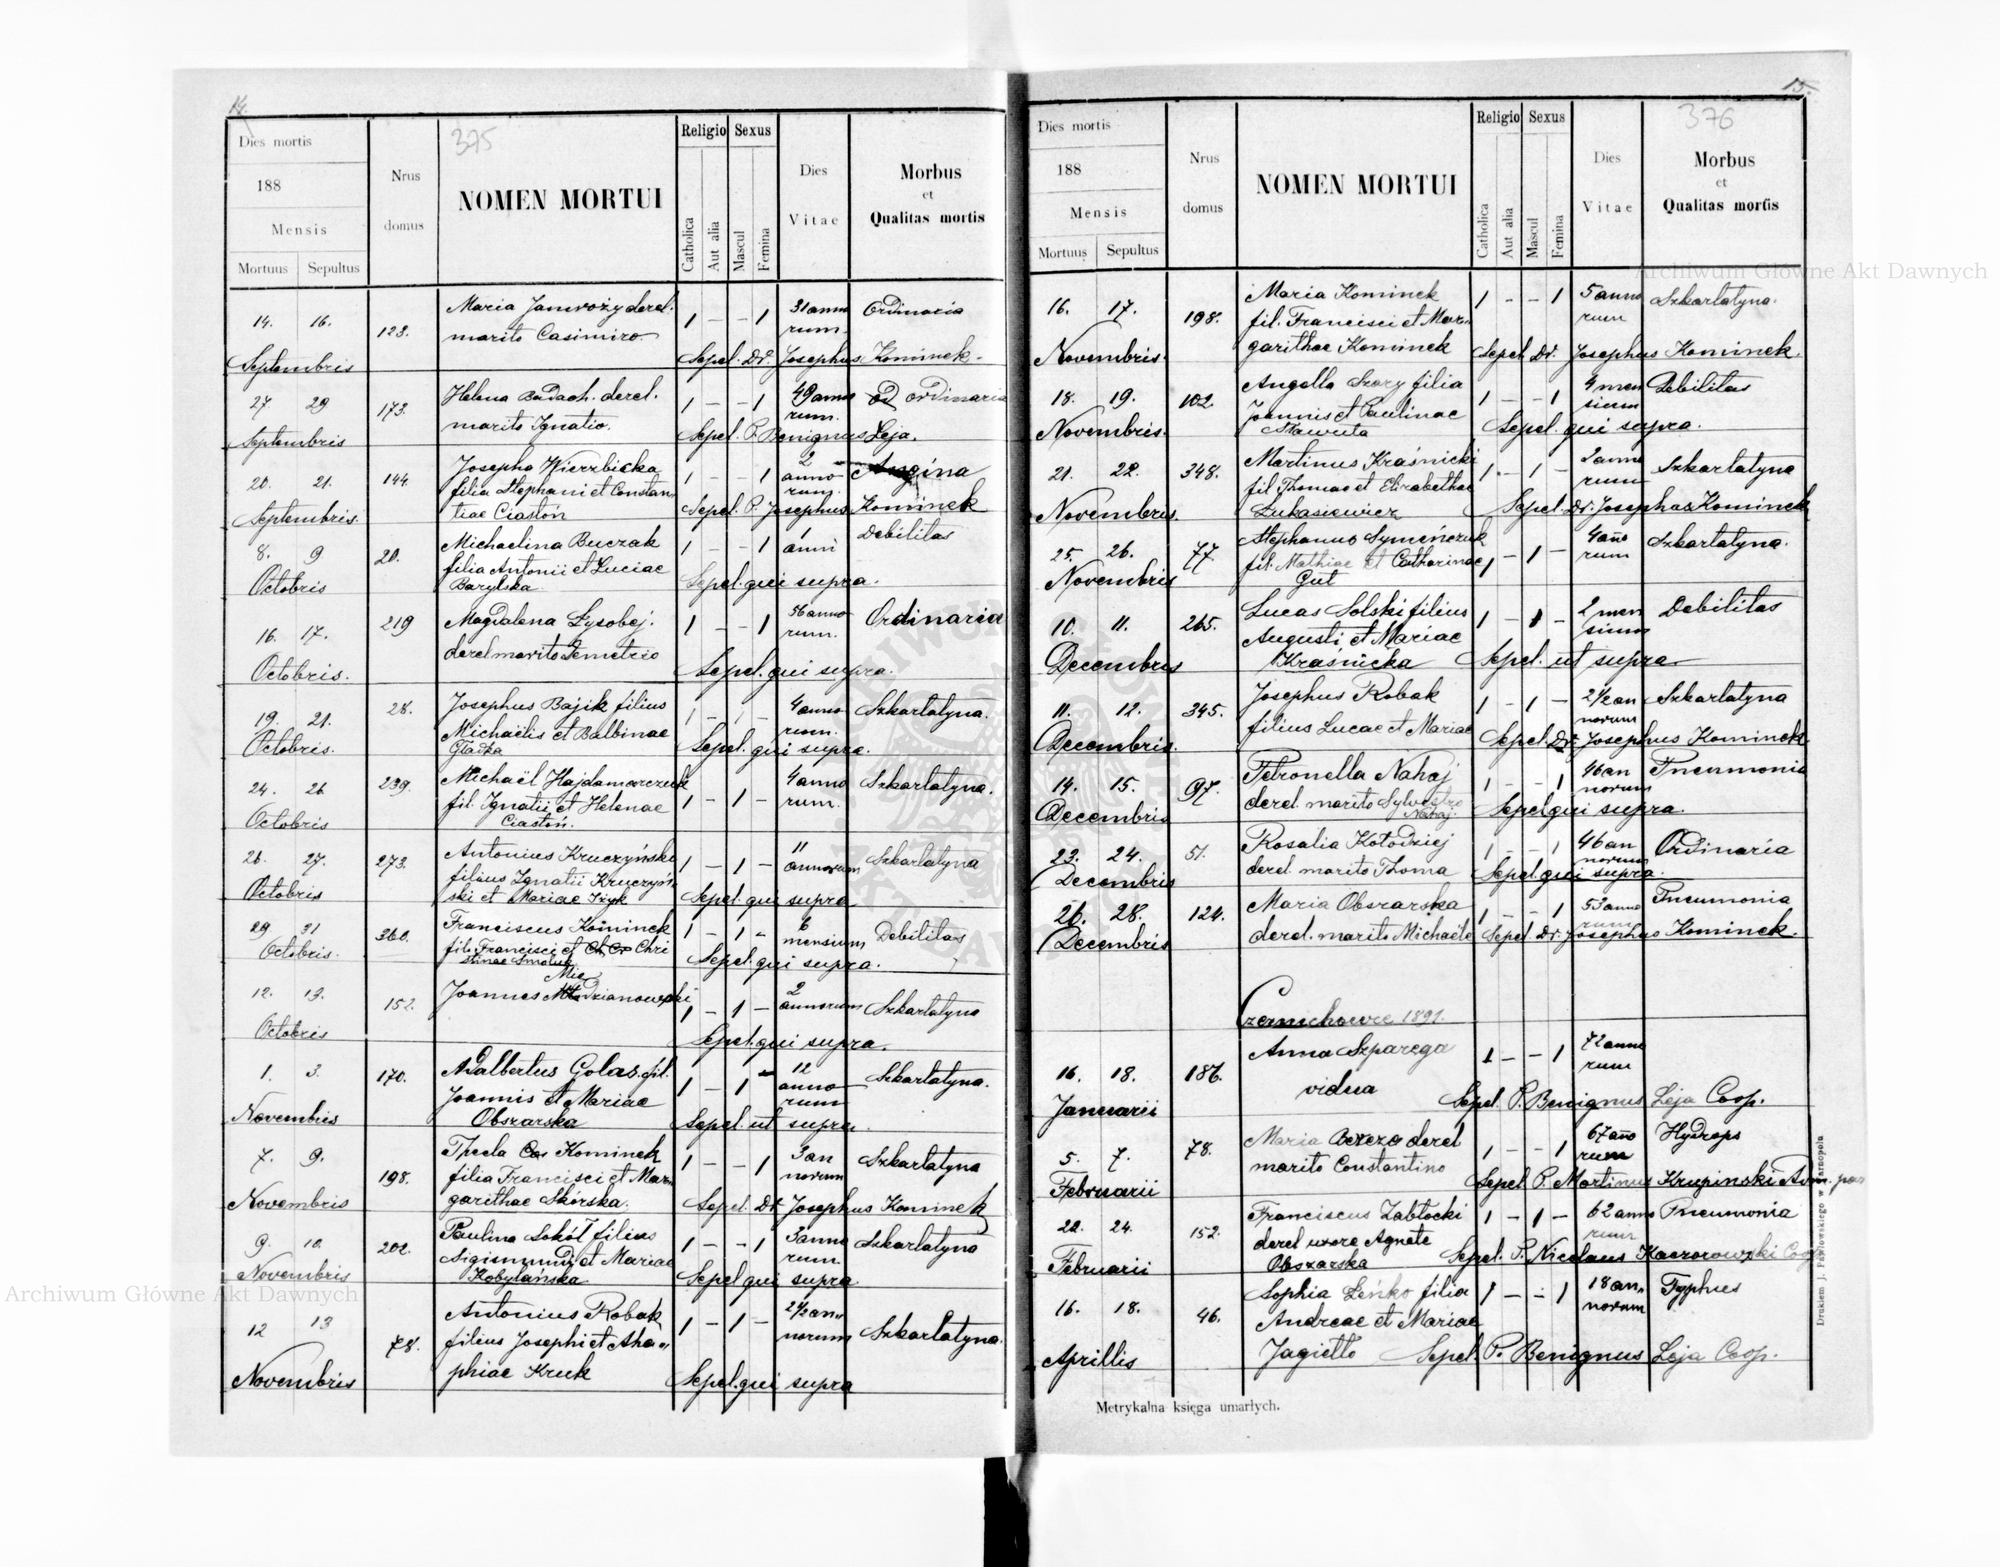 14.
Dies mortis
188
Mensis
Mortuus Sepultus
Nrus
domus
375
NOMEN MORTUI
Religio Sexus
Catholica
Aut alia
Mascul
Femina
Dies
Vitae
Morbus
et
Qualitas mortis
14. 16. 123. Maria Jamroży derel. 1 – – 1 31 anno Ordinaria
marito Casimiro rum.
Septembris Sepel. Dr. Josephus Kominek.
27. 29 173. Helena Badach. derel. 1 – – 1 49 anno ordinaria
marito Ignatio. rum.
Septembris Sepel. P. Benignus Leja.
20. 21. 144. Josepha Wierzbicka 1 – – 1 2 Angina
filia Stephani et Constan anno
Septembris. tiae Ciastoń rum. Sepel. P. Josephus Kominek
8. 9 20. Michaelina Buczak 1 – – 1 1 Debilitas
filia Antonii et Luciae anni
Octobris Barylska. Sepel. qui supra.
16. 17. 219 Magdalena Łysobej. 1 – – 1 56 anno Ordinaria
derel marito Demetrio rum.
Octobris. Sepel. qui supra.
19. 21. 28. Josephus Bajik filius 1 – 1 – 4 anno Szkarlatyna.
Michaëlis et Balbinae rum.
Octobris. Gładka Sepel. qui supra.
24. 26 239. Michaël Hajdamarczuk 1 – 1 – 4 anno Szkarlatyna.
fil. Ignatii et Helenae rum.
Octobris Ciastoń.
26. 27. 273. Antonius Kruczyński 1 – 1 – 11 Szkarlatyna
filius Ignatii Kruczyń annorum
Octobris ski et Mariae Sepel. qui supra
29 31 360. Franciscus Kominek 1 – 1 – 6 Debilitas
fil. Francisci et Chri mensium
Octobris. stinae Smolug Sepel. qui supra.
12. 13. 152. Joannes 1 – 1 – 2 Szkarlatyna
annorum
Octobris Sepel. qui supra.
1. 3. 170. Adalbertus Golas. fil. 1 – 1 – 12 Szkarlatyna.
Joannis et Mariae anno
Novembris Obszarska rum Sepel. ut supra.
7. 9. 198. Thecla Kominek 1 – – 1 3 an Szkarlatyna
filia Francisci et Mar norum
Novembris garithae Skórska. Sepel. Dr. Josephus Kominek
9. 10. 202. Paulina Sokół filius 1 – – 1 3 anno Szkarlatyna
Sigismundi et Mariae rum
Novembris Kobylańska Sepel qui supra
12 13 78. Antonius Robak 1 – 1 – 2½ an„ Szkarlatyna.
filius Josephi et Aha„ norum
Novembris phiae Kruk Sepel. qui supra
15.
Dies mortis
188
Mensis
Mortuus Sepultus
Nrus
domus
NOMEN MORTUI
Religio Sexus
Catholica
Aut alia
Mascul
Femina
Dies
Vitae
376
Morbus
et
Qualitas mortis
16. 17. 198. Maria Kominek 1 – – 1 5 anno Szkarlatyna.
fil. Francisci et Mar„ rum
Novembris. garithae Kominek Sepel Dr. Josephus Kominek.
18. 19. 102. Angella Szary filia 1 – – 1 4 men Debilitas
Joannis et Paulinae sium
Novembris. Nawruta Sepel. qui supra.
21. 22. 348. Martinus Kraśnicki 1 – 1 – 2 anno Szkarlatyna
fil Thomae et Elizabethae rum
Novembris. Łukasiewicz Sepel. Dr. Josephus Kominek
25. 26. 77. Stephanus Symeńczuk 4 año Szkarlatyna.
fil. Mathiae et Catharinae 1 – 1 – rum
Novembris Gut
10. 11. 265. Lucas Solski filius 1 – 1 – 2 men Debilitas
Augusti et Mariae sium
Decembris Kraśnicka Sepel. ut supra
11. 12. 345. Josephus Robak 1 – 1 – 2½ an Szkarlatyna
filius Lucae et Mariae norum
Decembris. Sepel Dr. Josephus Kominek
14. 15. 97. Petronella Nahaj 1 – – 1 46 an Pneumonia
derel. marito Sylvestro norum
Decembris Nahaj. Sepel qui supra.
23. 24. 51. Rosalia Kołodziej 1 – – 1 46 an Ordinaria
derel marito Thoma norum
Decembris Sepel. qui supra.
26. 28. 124. Maria Obszarska 1 – – 1 53 anno Pneumonia
derel. marito Michaële rum
Decembris Sepel Dr. Josephus Kominek.
Czernichowce 1891.
16. 18. 186. Anna Szparega 1 – – 1 72 anno
vidua rum
Januarii Sepel. P. Benignus Leja Coop.
5. 7. 78. Maria Bereza derel 1 – – 1 67 año Hydrops
marito Constantino rum
Februarii Sepel P. Martinus Krupinski Adm. par
22. 24. 152. Franciscus Zabłocki 1 – 1 – 62 anno Pneumonia
derel uxore Agnete rum
Februarii Obszarska Sepel. P. Nicolaus Kaczorowski Coop
16. 18. 46. Sophia Leńko filia 1 – – 1 18 an„ Typhus
Andreae et Mariae norum
Aprillis Jagiełło Sepel. P. Benignus Leja Coop.
Metrykalna księga umarłych.
Drukiem J. Pawłowskiego w Tarnopolu
Archiwum Główne Akt Dawnych
Archiwum Główne Akt Dawnych